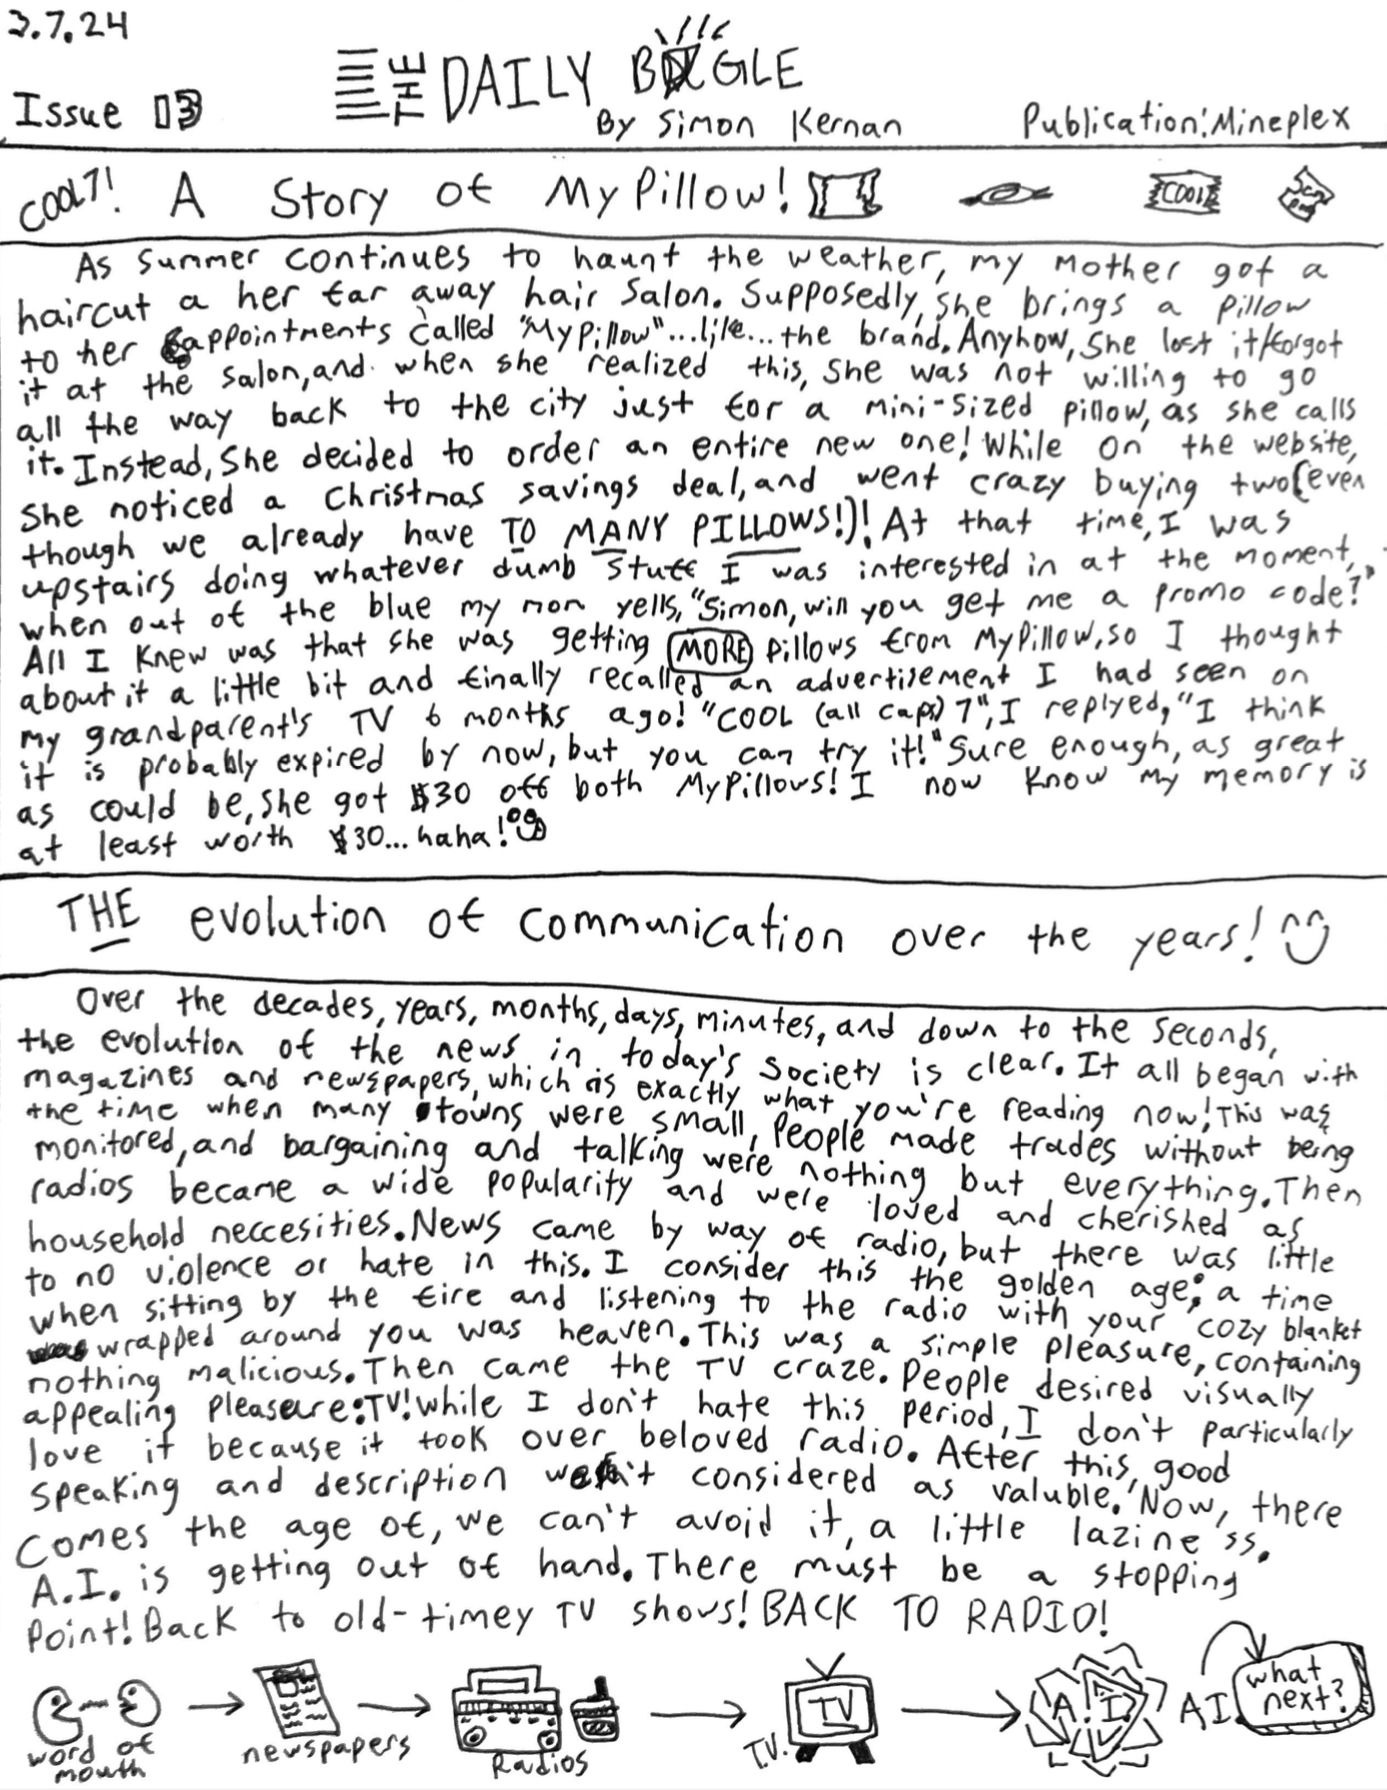 3.7.24
THE DAILY BUGLE
Issue 03
By Simon Kernan
Publication: Mineplex
COOL7! A Story of MyPillow! COOL
As summer continues to haunt the weather, my mother got a
haircut a her far away hair salon. Supposedly, she brings a pillow
to her appointments called "MyPillow"...like... the brand. Anyhow, she lost it/forgot
it at the salon, and when she realized this, she was not willing to go
all the way back to the city just for a mini-sized pillow, as she calls
it. Instead, she decided to order an entire new one! While on the website,
she noticed a Christmas savings deal, and went crazy buying two(even
though we already have TO MANY PILLOWS!)! At that time, I was
upstairs doing whatever dumb stuff I was interested in at the moment,
when out of the blue my mom yells, "Simon, will you get me a promo code?"
All I knew was that she was getting MORE pillows from MyPillow, so I thought
about it a little bit and finally recalled an advertisement I had seen on
my grandparent's TV 6 months ago! "COOL (all caps) 7", I replyed, "I think
it is probably expired by now, but you can try it!" Sure enough, as great
as could be, she got $30 off both MyPillows! I now know my memory is
at least worth $30... haha!
THE evolution of communication over the years!
Over the decades, years, months, days, minutes, and down to the seconds,
the evolution of the news in today's society is clear. It all began with
magazines and newspapers, which is exactly what you're reading now! This was
the time when many towns were small, People made trades without being
monitored, and bargaining and talking were nothing but everything. Then
radios became a wide popularity and were loved and cherished as
household neccesities. News came by way of radio, but there was little
to no violence or hate in this. I consider this the golden age; a time
when sitting by the fire and listening to the radio with your cozy blanket
wrapped around you was heaven. This was a simple pleasure, containing
nothing malicious. Then came the TV craze. People desired visually
appealing pleasure: TV! While I don't hate this period, I don't particularly
love it because it took over beloved radio. After this, good
speaking and description wasn't considered as valuble. Now, there
comes the age of, we can't avoid it, a little laziness.
A.I. is getting out of hand. There must be a stopping
Point! Back to old-timey TV shows! BACK TO RADIO!
word of mouth
newspapers
Radios
TV
T.V.
A.I.
A.I.
what next?